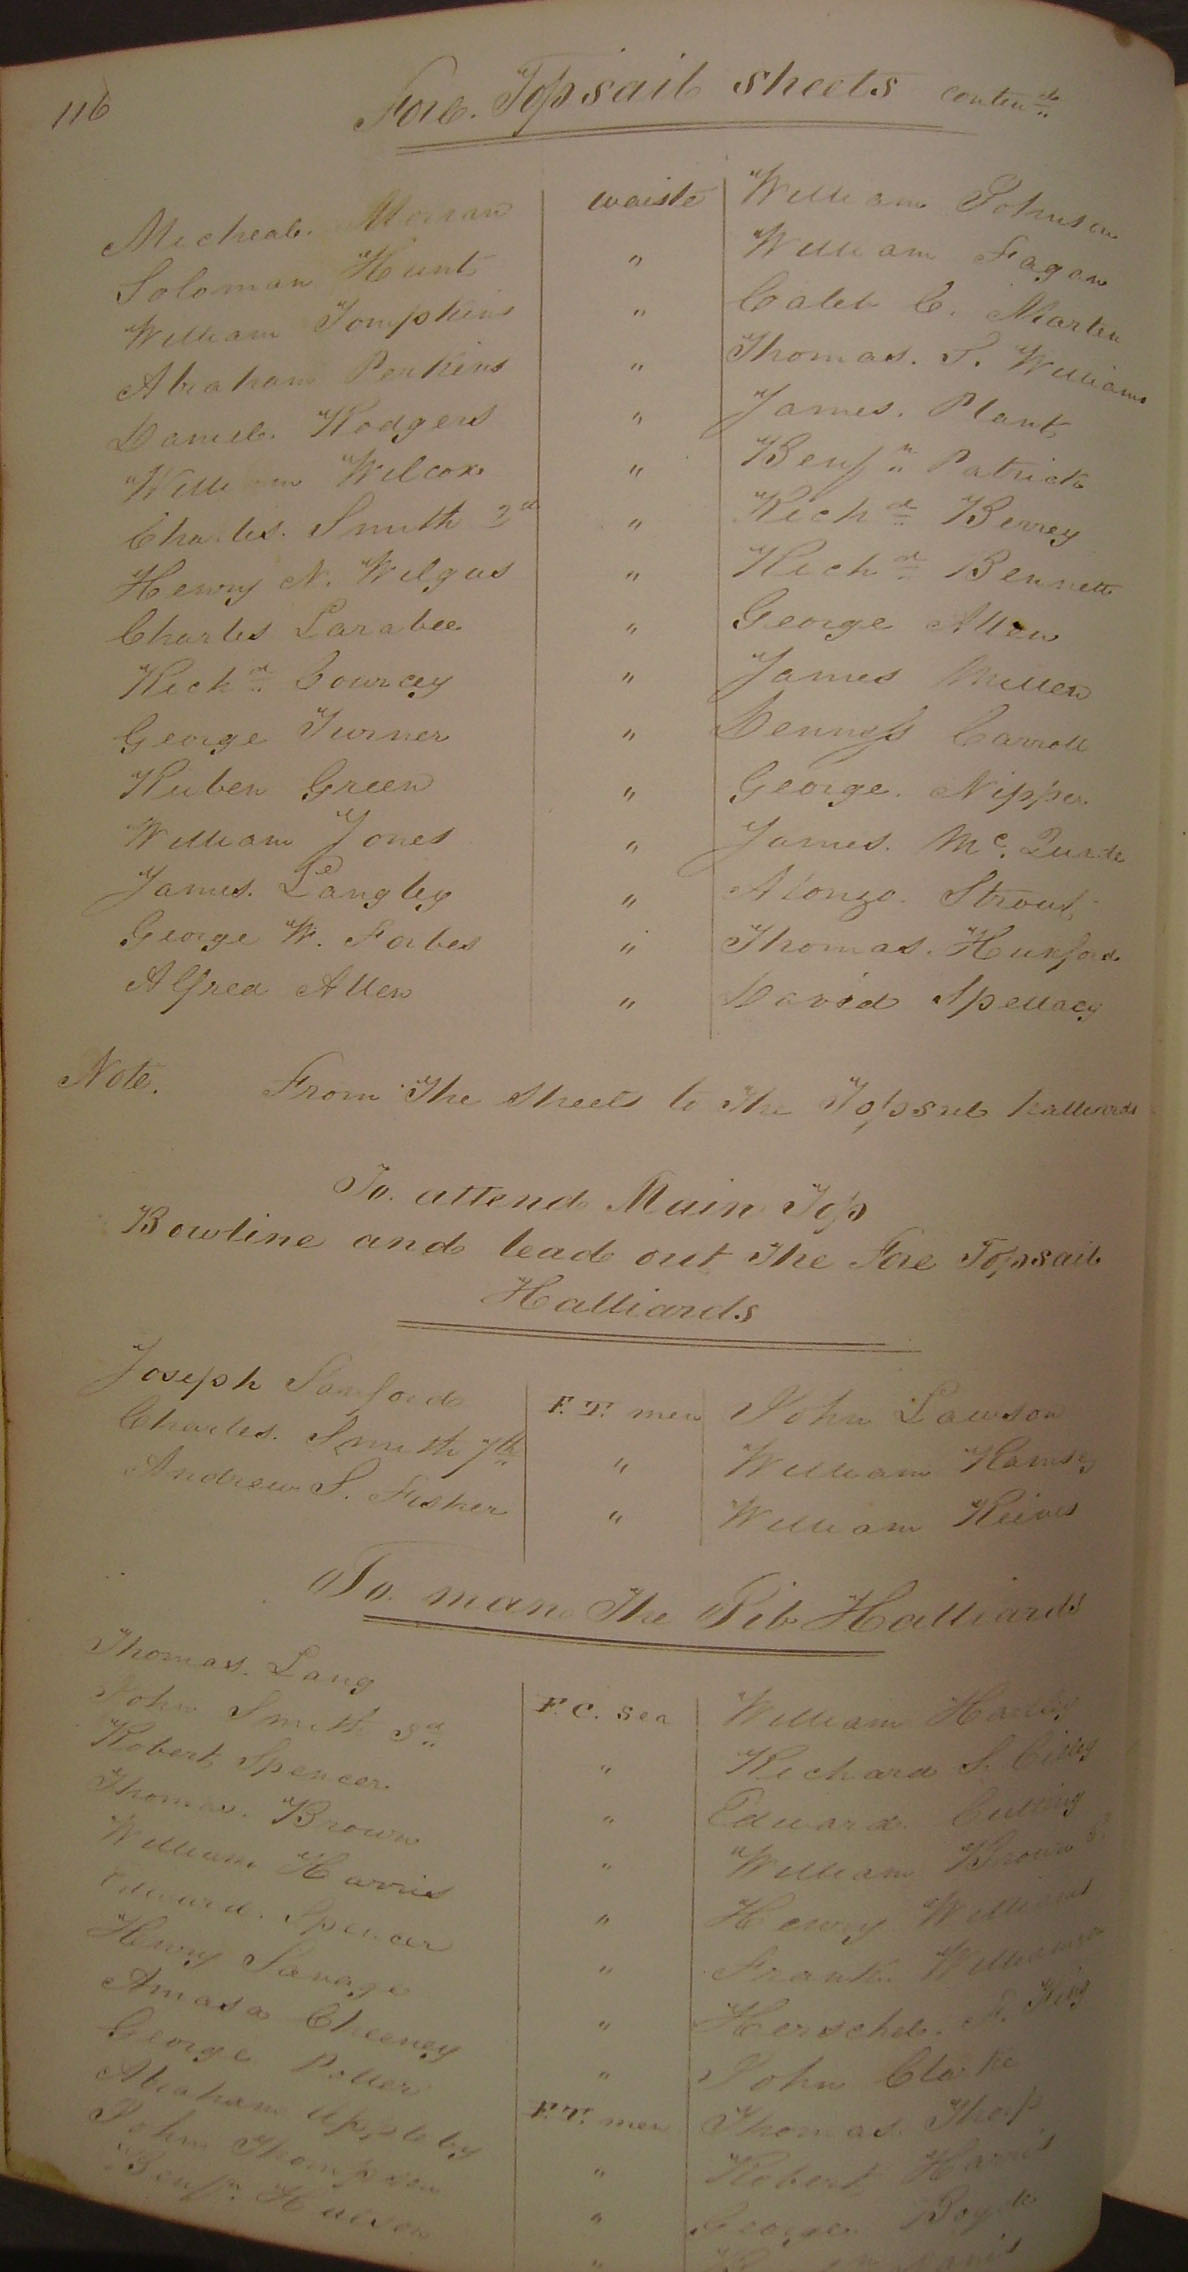 116
Fore. Topsail sheets contin.d
Micheal. Moran waiste William Johnson
Soloman Hunt " William Fagan
William Tompkins " Caleb C. Martin
Abraham Perkins " Thomas. J. Williams
Daniel. Rodgers " James. Plant
William Wilcox " Benj.n Patrick
Charles. Smith 2d " Rich.d Berrey
Henry N. Wilgus " Rich.d Bennett
Charles Larabee " George Allen
Rich.d Courcey " James Miller
George Turner " Denness Carroll
Ruben Green " George. Nipper
William Jones " James. Mc.
James. Langley " Alonzo. Strout
George W. Forbes " Thomas. Hunford
Alfred Allen " David Spellacy
Note. From The sheets to The Topsail halliards
To. attend Main Top
Bowline and lead out The Fore Topsail
Halliards
Joseph Sanford F.T. men John Lawson
Charles. Smith 7th " William Ramsey
Andrew S. Fisher " William Reives
To. man The Jib Halliards
Thomas. Lang F.C. sea William
John Smith 3d " Richard S.
Robert Spencer " Edward. Cutting
Thomas. Brown " William Brown
William Harris " Henry Williams
Edward. Spencer " Frank. Williamson
Henry Savage " Herschel. F. King
Amasa Cheeney " John Clarke
George Potter F.T. men Thomas. Thorp
Abraham Appleby " Robert Harris
John Thompson " George. Boyd
Benj.n